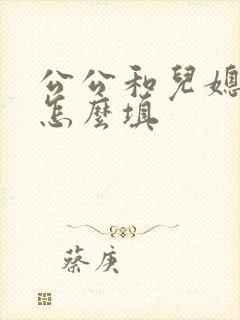 公公和兒媳
怎麼填
蔡庚